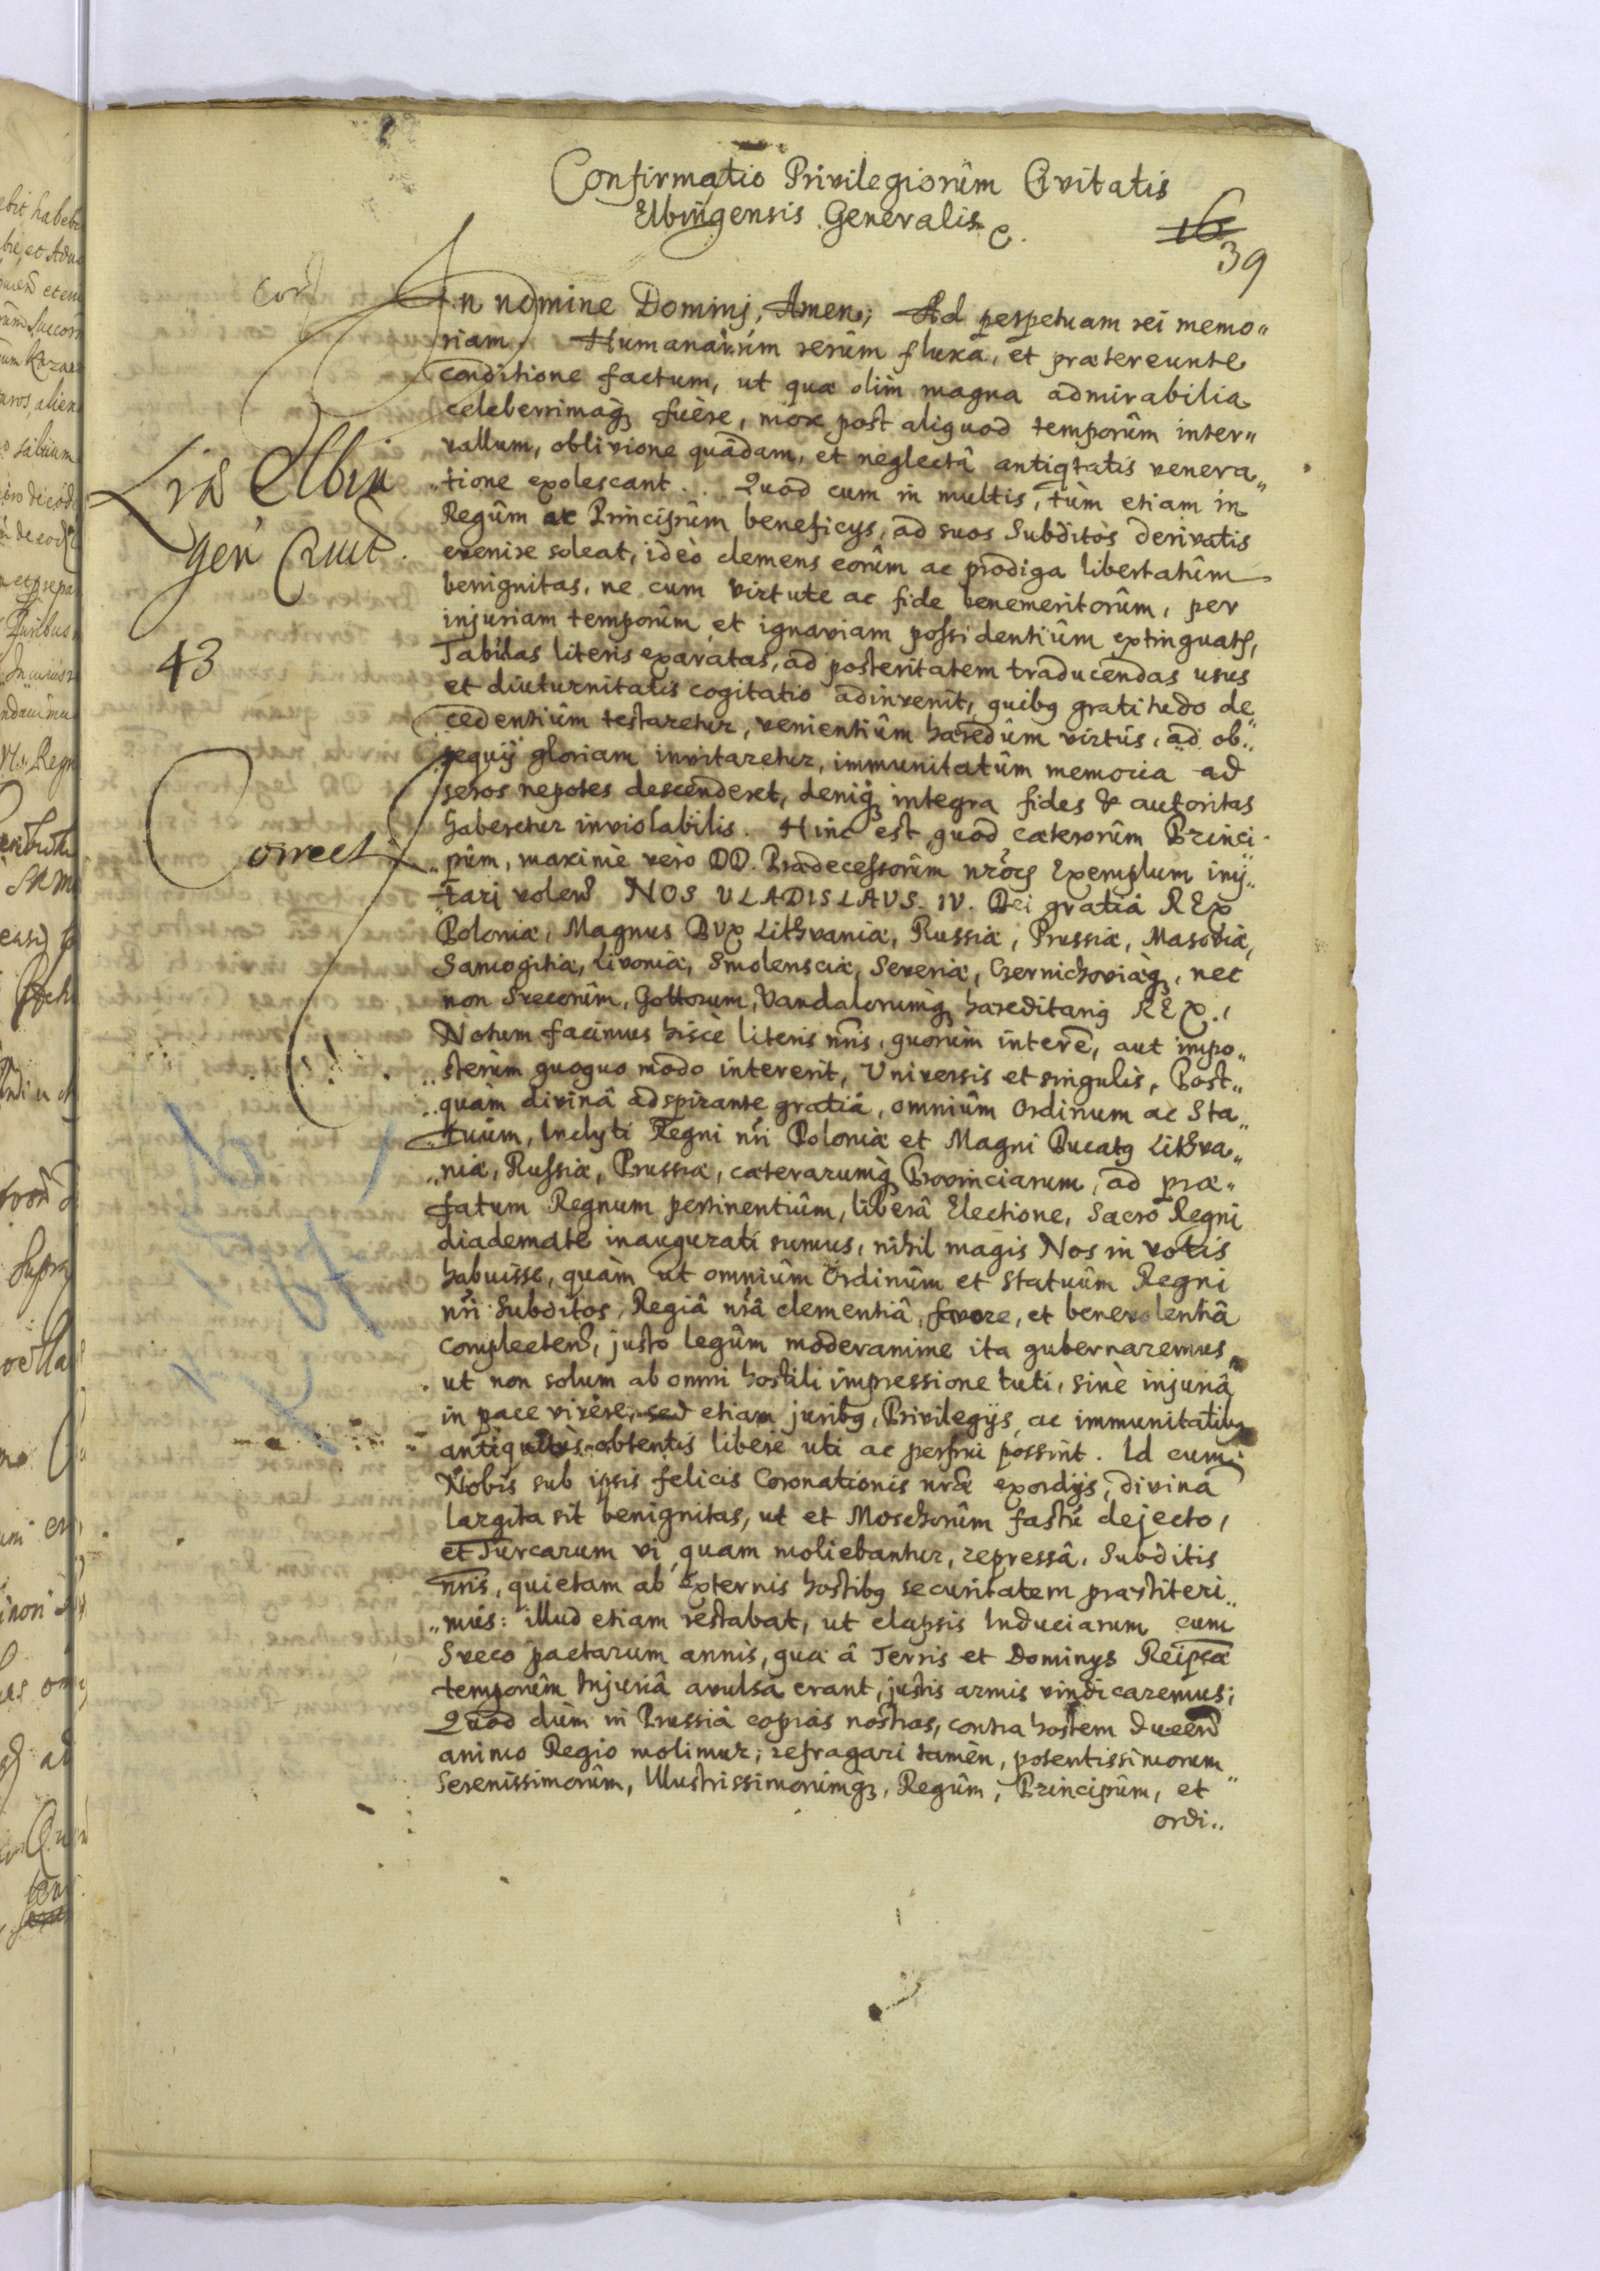 Confirmatio Privilegiorûm Civitatis
Elbingensis Generalis
16
39
In nomine Dominj, Amen; Ad perpetuam rei memo"
riam. Humanarúm rerûm fluxa, et prætereunte
conditione factum, ut quæ olim magna admirabilia
celeberrimaq; fuère, mox post aliquod temporûm inter"
vallum, oblivione quâdam, et neglectâ antiqtatis venera"
"tione exolescant. Quod cum in multis, tùm etiam in
Regûm ac Principûm beneficys, ad suos Subditòs derivatis
evenire soleat, ideò clemens eorûm ac prodiga libertatûm
benignitas, ne cum virtute ac fide benemeritorûm, per
injuriam temporûm et ignaviam possidentiûm extinguatr,
Tabulas literis exaratas, ad posteritatem traducendas usus
et diuturnitatis cogitatio adinvenit, quibq gratitudo de"
cedentiûm testaretur, venientiûm hæredûm virtús, ad ob"
sequij gloriam invitaretur, immunitatûm memoria ad
seros nepotes descenderet, deniq; integra fides & autoritas
haberetur inviolabilis. Hinc est quod cæterorûm Princi"
"pûm, maximè verò DD. Prædecessorûm nrorq Exemplum imy"
"tarj volend NOS VLADISLAVS. IV. Dei gratiâ REX
Poloniæ, Magnus DVX Lithvaniæ, Russiæ, Prussiæ, Masoviæ,
Samogitiæ, Livoniæ, Smolensciæ, Severiæ, Czernichoviæq;, nec
non Svecorûm, Gottorum, Vandalorumq; hæreditariq REX.
Notum facimus hisce literis nris, quorúm interē, aut impo"
"sterúm quoquo modo intererit, Universis et singulis, Post"
"quàm divinâ adspirante gratiâ, omniûm Ordinum ac Sta"
"tuûm, Inclyti Regni nri Poloniæ et Magni Ducatq Lithva"
"niæ, Russiæ, Prussiæ, cæterarumq; Provinciarum, ad præ"
fatum Regnum pertinentiûm, liberâ Electione, Sacro Regni
diademate inaugurati sumus, nihil magis Nos in votis
habuisse, quàm ut omniûm Ordinûm et Statuûm Regni
nri Subditos, Regiâ nrâ clementiâ, favore, et benevolentiâ
complectend, justo legûm moderamine ita gubernaremus,
ut non solum ab omni hostili impressione tuti, sinè injuriâ
in pace vivere, sed etiam juribq, Privilegijs ac immunitatibq
antiquitùs obtentis liberè uti ac perfrui possint. Id cum
Nobis sub ipsis felicis Coronationis nræ exordijs, divina
largita sit benignitas, ut et Moschorûm fastú dejecto,
et Turcarum vi quam moliebantur, repressâ, Subditis
nris, quietam ab Externis hostibq securitatem præstiteri"
"mus: illud etiam restabat, ut elapsis Induciarum cum
Sveco pactarum annis, quæ â Terris et Dominys Reipcæ
temporûm Injuriâ avulsa erant, justis armis vindicaremus;
Quod dùm in Prussiâ copias nostras, contra hostem ducend
animo Regio molimur, refragari tamèn, potentissimorum
Serenissimorûm, Illustrissimorúmq;, Regûm, Principûm, et
ordi"
Cord
Elbin
gen Civit.
43
Correct